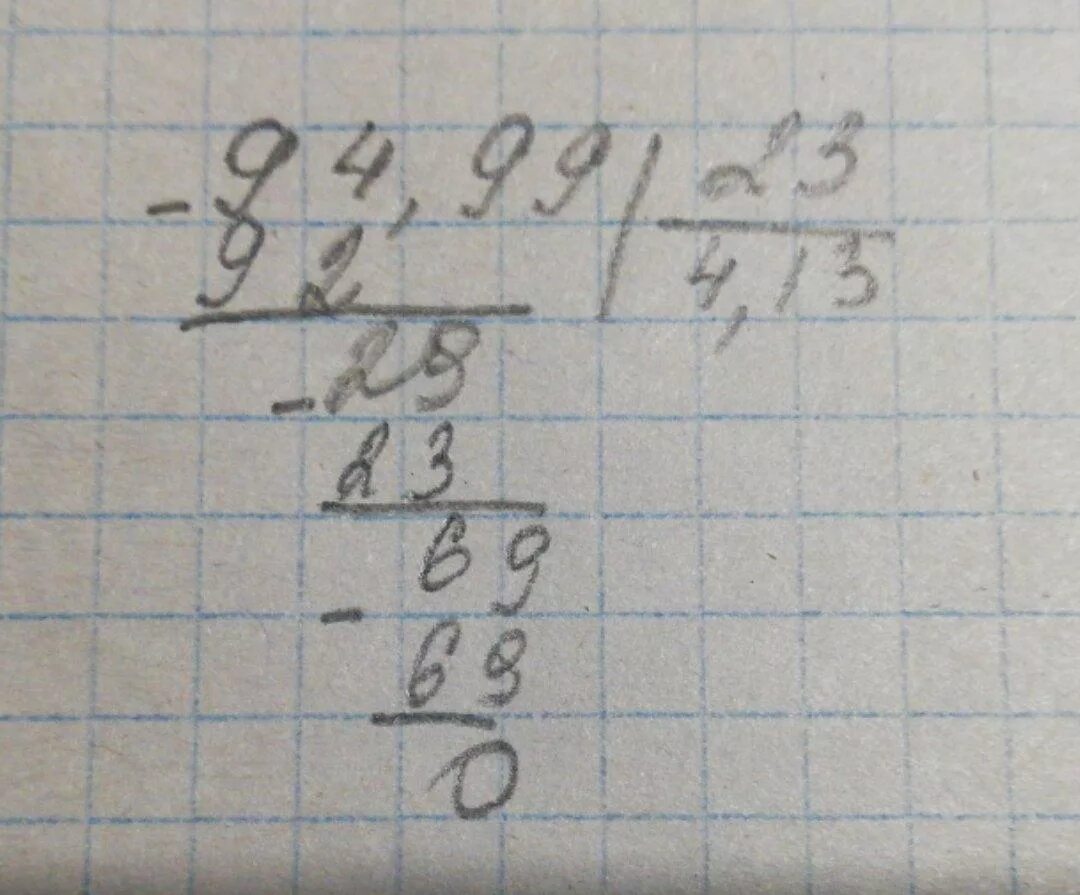 - 94,99 | 23
92 4,13
- 29
23
- 69
69
0